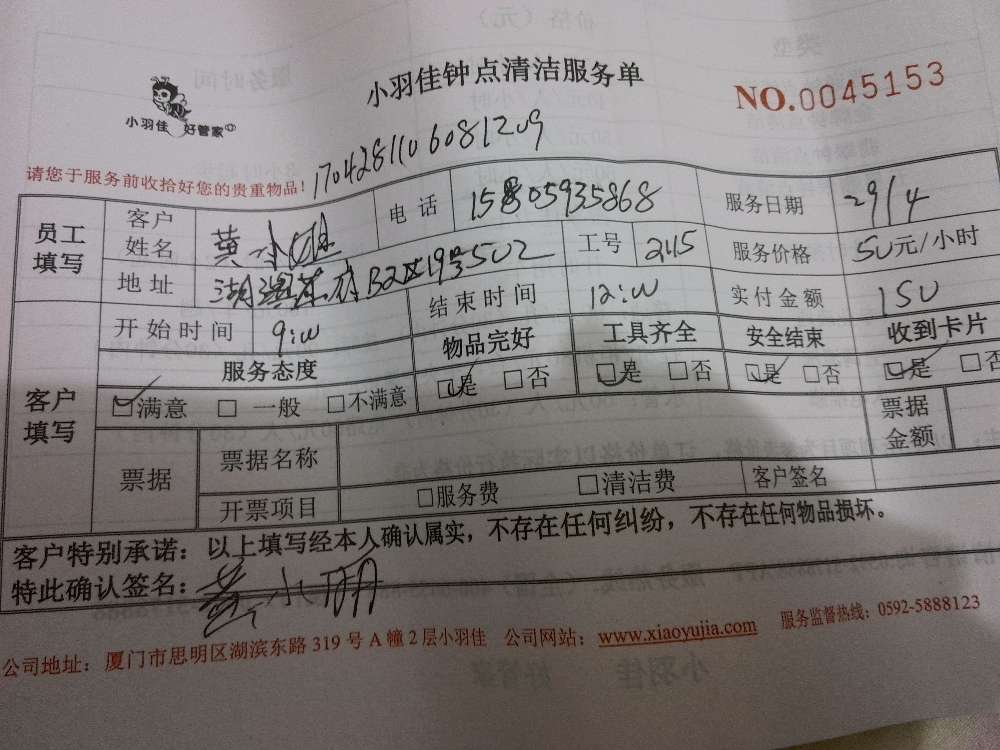 小羽佳钟点清洁服务单
NO.0045153
小羽佳 好管家
1704281106081209
请您于服务前收拾好您的贵重物品!
员工填写
客户姓名 黄小姐 电话 15805935868 服务日期 29/4
地址 B2区19号502 工号 2115 服务价格 50元/小时
开始时间 9:00 结束时间 12:00 实付金额 150
客户填写
服务态度 物品完好 工具齐全 安全结束 收到卡片
☑满意 □一般 □不满意 ☑是 □否 ☑是 □否 ☑是 □否 ☑是 □否
票据 票据名称 票据金额
开票项目 □服务费 □清洁费 客户签名
客户特别承诺:以上填写经本人确认属实,不存在任何纠纷,不存在任何物品损坏。
特此确认签名: 黄小明
公司地址:厦门市思明区湖滨东路 319 号 A 幢 2 层小羽佳 公司网站:www.xiaoyujia.com 服务监督热线:0592-5888123